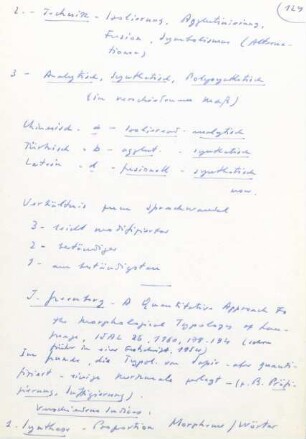 124
2. - Technik - Isolierung, Agglutinierung,
Fusion, Symbolismus (Alterna-
tionen)
3 - Analytisch, Synthetisch, Polysynthetisch
(in verschiedenem Maß)
Chinesisch - a - isolierend - analytisch
Türkisch - b - agglut. - synthetisch
Latein - d - fusionath - synthetisch
usw.
Verhältnis zum Sprachwandel
3 - leicht modifizierbar
2 - beständiger
1 - am beständigsten
J. Greenberg - A Quantitative Approach to
the Morphological Typology of Lan-
guage, IJAL 26, 1960, 178-194 (schon
früher in einer Festschrift, 1954)
Im Grunde, die Typol. von Sapir - aber quanti-
fiziert - einige Merkmale gelegt - (z.B. Präfi-
gierung, Suffigierung)
Verschiedene Indices.
1. Synthese - Proportion Morpheme / Wörter